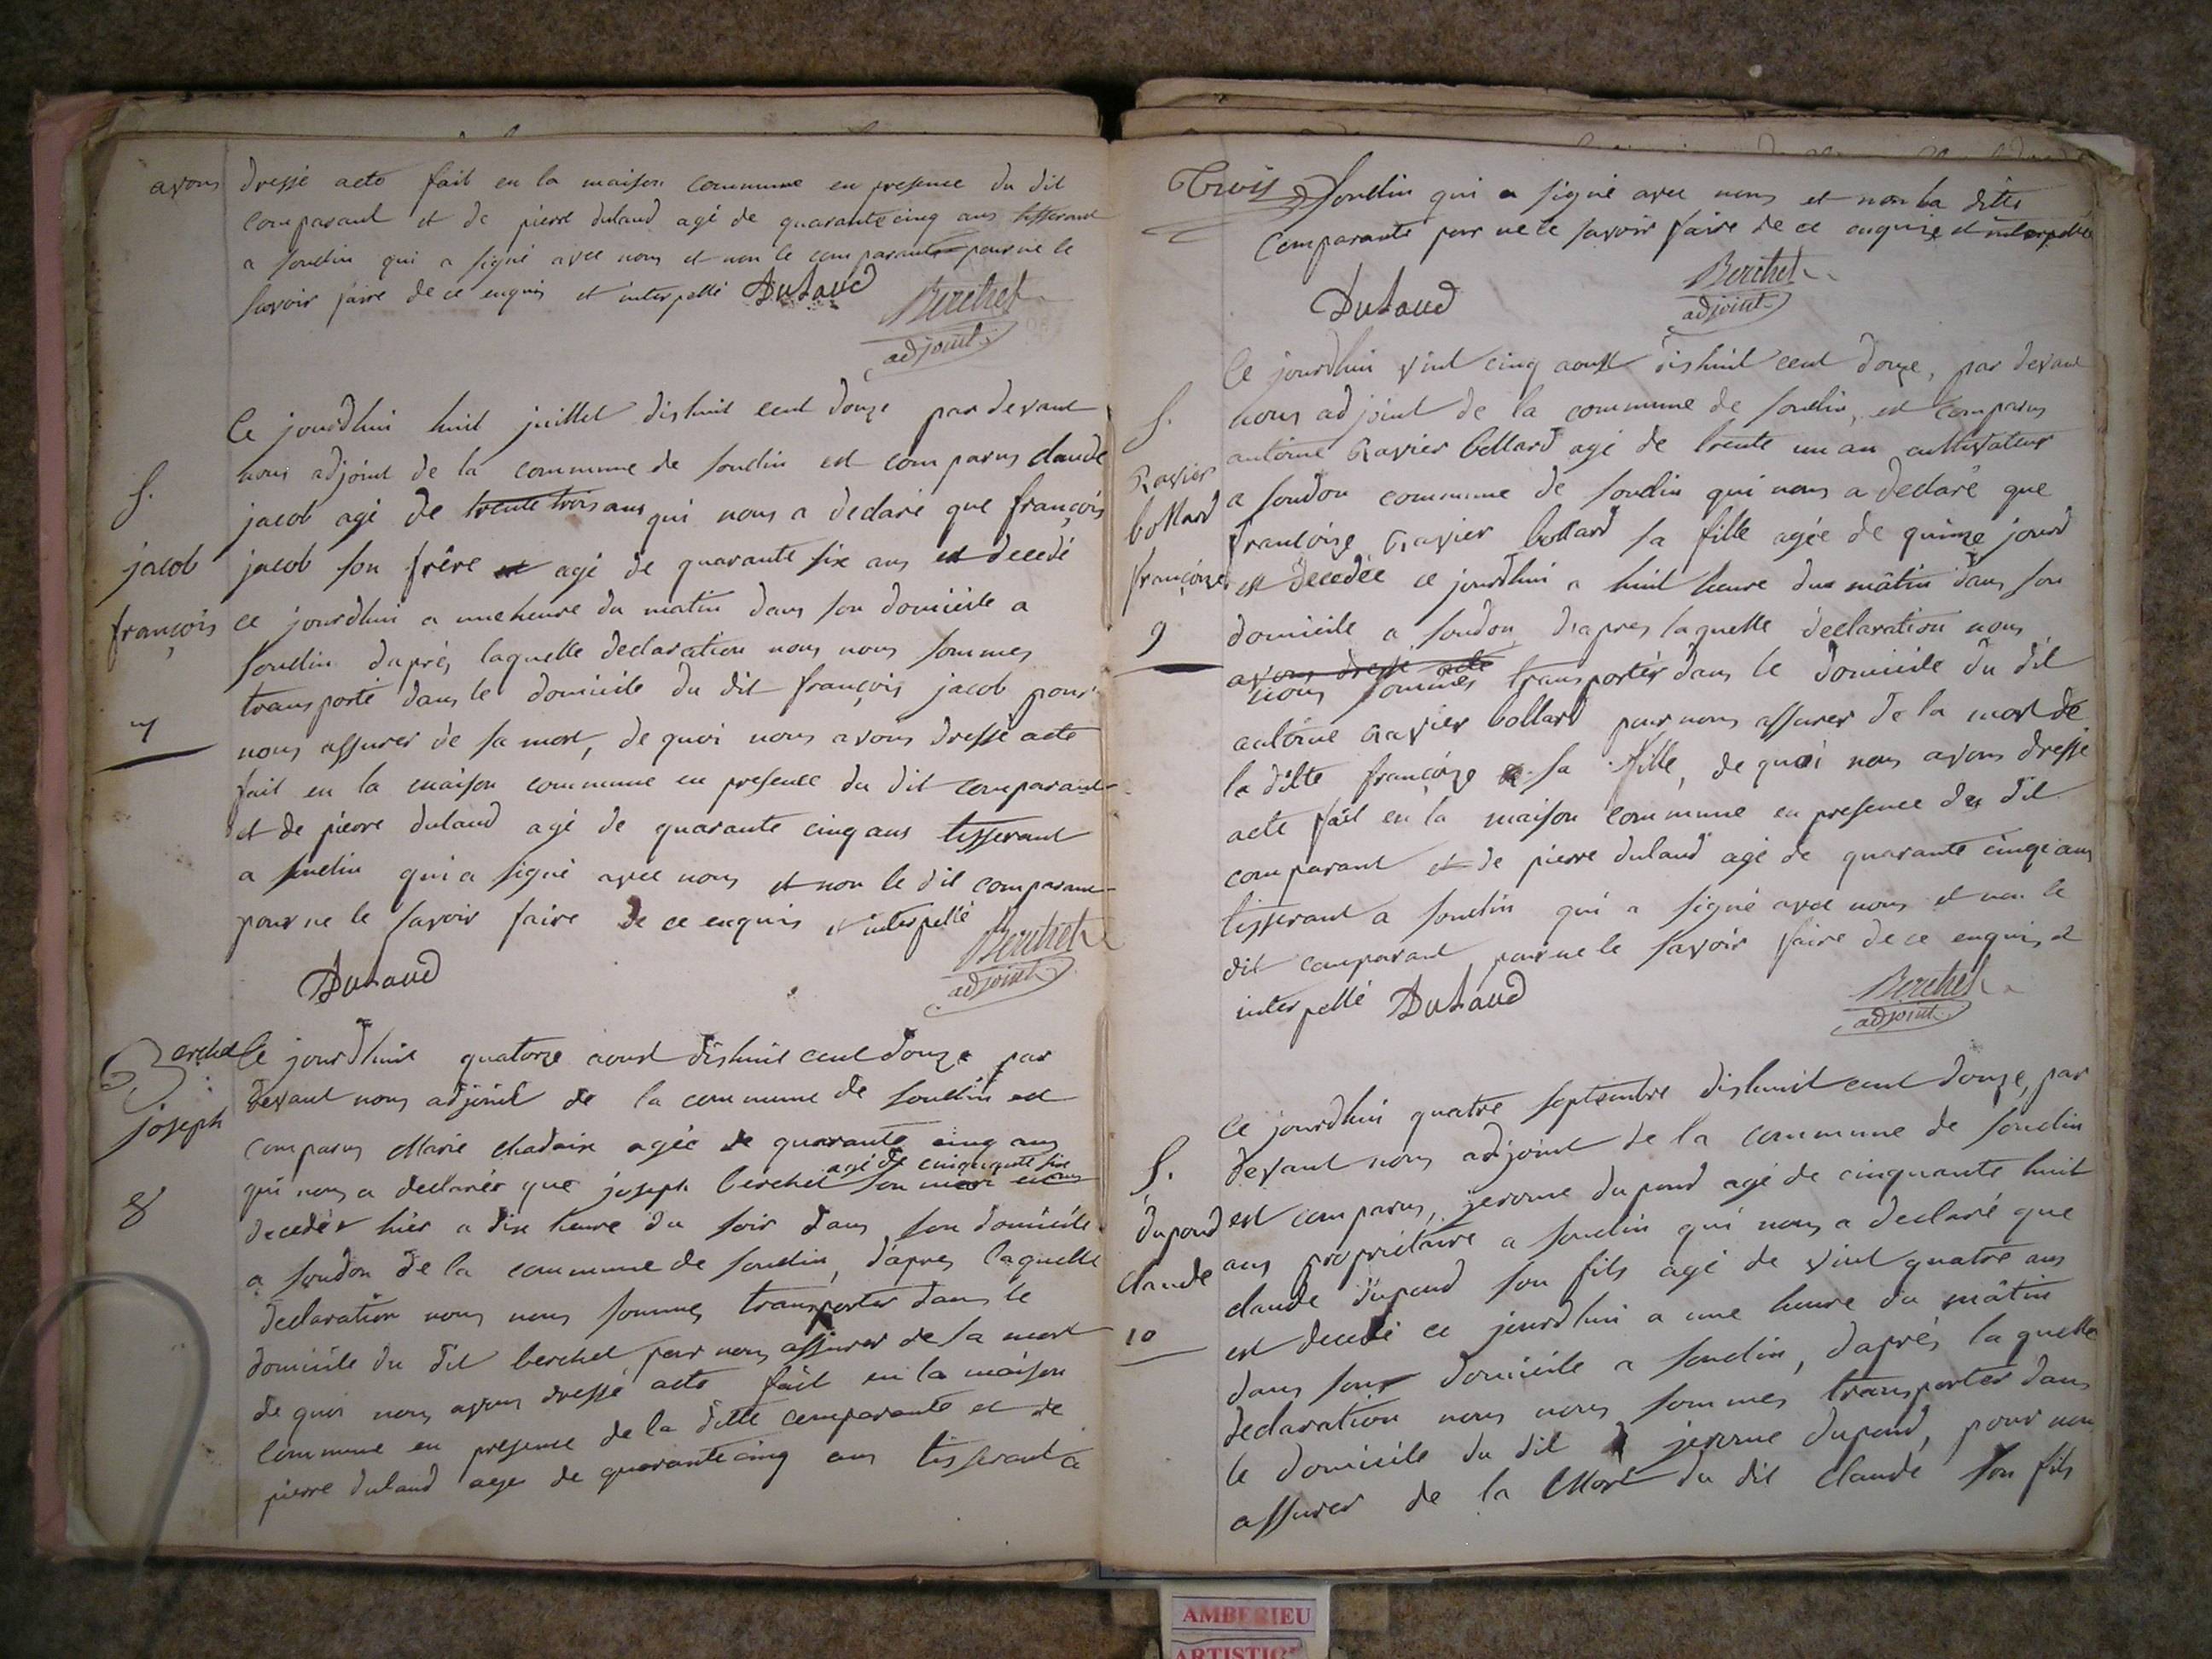 avons dressé acte fait en la maison commune en presence du dit
comparant et de pierre dulaud agé de quarante cinq ans tisserant
a soudin qui a signé avec nous et non le comparant pour ne le
savoir faire de ce enquis et interpellé Dulaud
Berchet
adjoint
Ce jourdhui huit juillet dishuit cent douze par devant
nous adjoint de la commune de soudin est comparus claude
jacob agé de trente trois ans qui nous a declaré que françois
jacob son frêre est agé de quarante six ans est decedé
ce jourdhui a une heure du matin dans son domicile a
soudin daprès laquelle declaration nous nous sommes
transporté dans le domicile du dit françois jacob pour
nous assurer de sa mort, de quoi nous avons dressé acte
fait en la maison commune en presence du dit comparant
et de pierre dulaud agé de quarante cinq ans tisserant
a soudin qui a signé avec nous et non le dit comparant
pour ne le savoir faire de ce enquis et interpellé
Dulaud
Berchet
adjoint
f.
jacob
françois
7
Berchet
joseph
8
Ce jourdhuit quatorze aoust dishuit cent douze par
devant nous adjoint de la commune de soudin est
comparus Marie chadaix agée de quarante cinq ans
agé de cinquante six ans
qui nous a declarér que joseph berchet son mari est
decedér hier a dix heure du soir dans son domicile
a soudon de la commune de soudin, d'apres laquelle
declaration nous nous sommes transporter dans le
domicile du dit berchet pour nous assurer de sa mort
de quoi nous avons dressé acte fait en la maison
commune en presence de la ditte comparante et de
pierre dulaud agé de quarante cinq ans tisserant a
Trois
soudin qui a signé avec nous et non la ditte
comparante pour ne le savoir faire de ce enquise et interpellée
Dulaud
Berchet
adjoint
Ce jourdhui vint cinq aoust dishuit cent douze, par devant
nous adjoint de la commune de soudin, est comparus
antoine Ravier bollard agé de trente un an cultivateur
a soudon commune de soudin qui nous a declaré que
françoize Ravier bollard sa fille agée de quinze jourd
est decedée ce jourdhui a huit heure du mâtin dans son
domicile a soudon d'apres laquelle declaration nous
avons dressé acte
nous sommes transportér dans le domicile du dit
antoine Ravier bollard pour nous assurer de la mort de
la ditte françoize sa fille, de quoi nous avons dressé
acte fait en la maison commune en presence du dit
comparant et de pierre dulaud agé de quarante cinq ans
tisserant a soudin qui a signé avec nous et non le
dit comparant pour ne le savoir faire de ce enquis et
interpellé Dulaud
Berchet
adjoint
f.
Ravier
bollard
françoize
9
Ce jourdhui quatre septembre dishuit cent douze, par
devant nous adjoint de la commune de soudin
est comparus, jerome dupond agé de cinquante huit
ans propriétaire a soudin qui nous a declaré que
claude dupond son fils agé de vint quatre ans
est decedé ce jourdhui a une heure du mâtin
dans son domicile a soudin, daprés laquelle
declaration nous nous sommes transporter dans
le domicile du dit jerome dupond, pour nous
assurer de la Mort du dit claude son fils
f.
dupond
claude
10
AMBERIEU